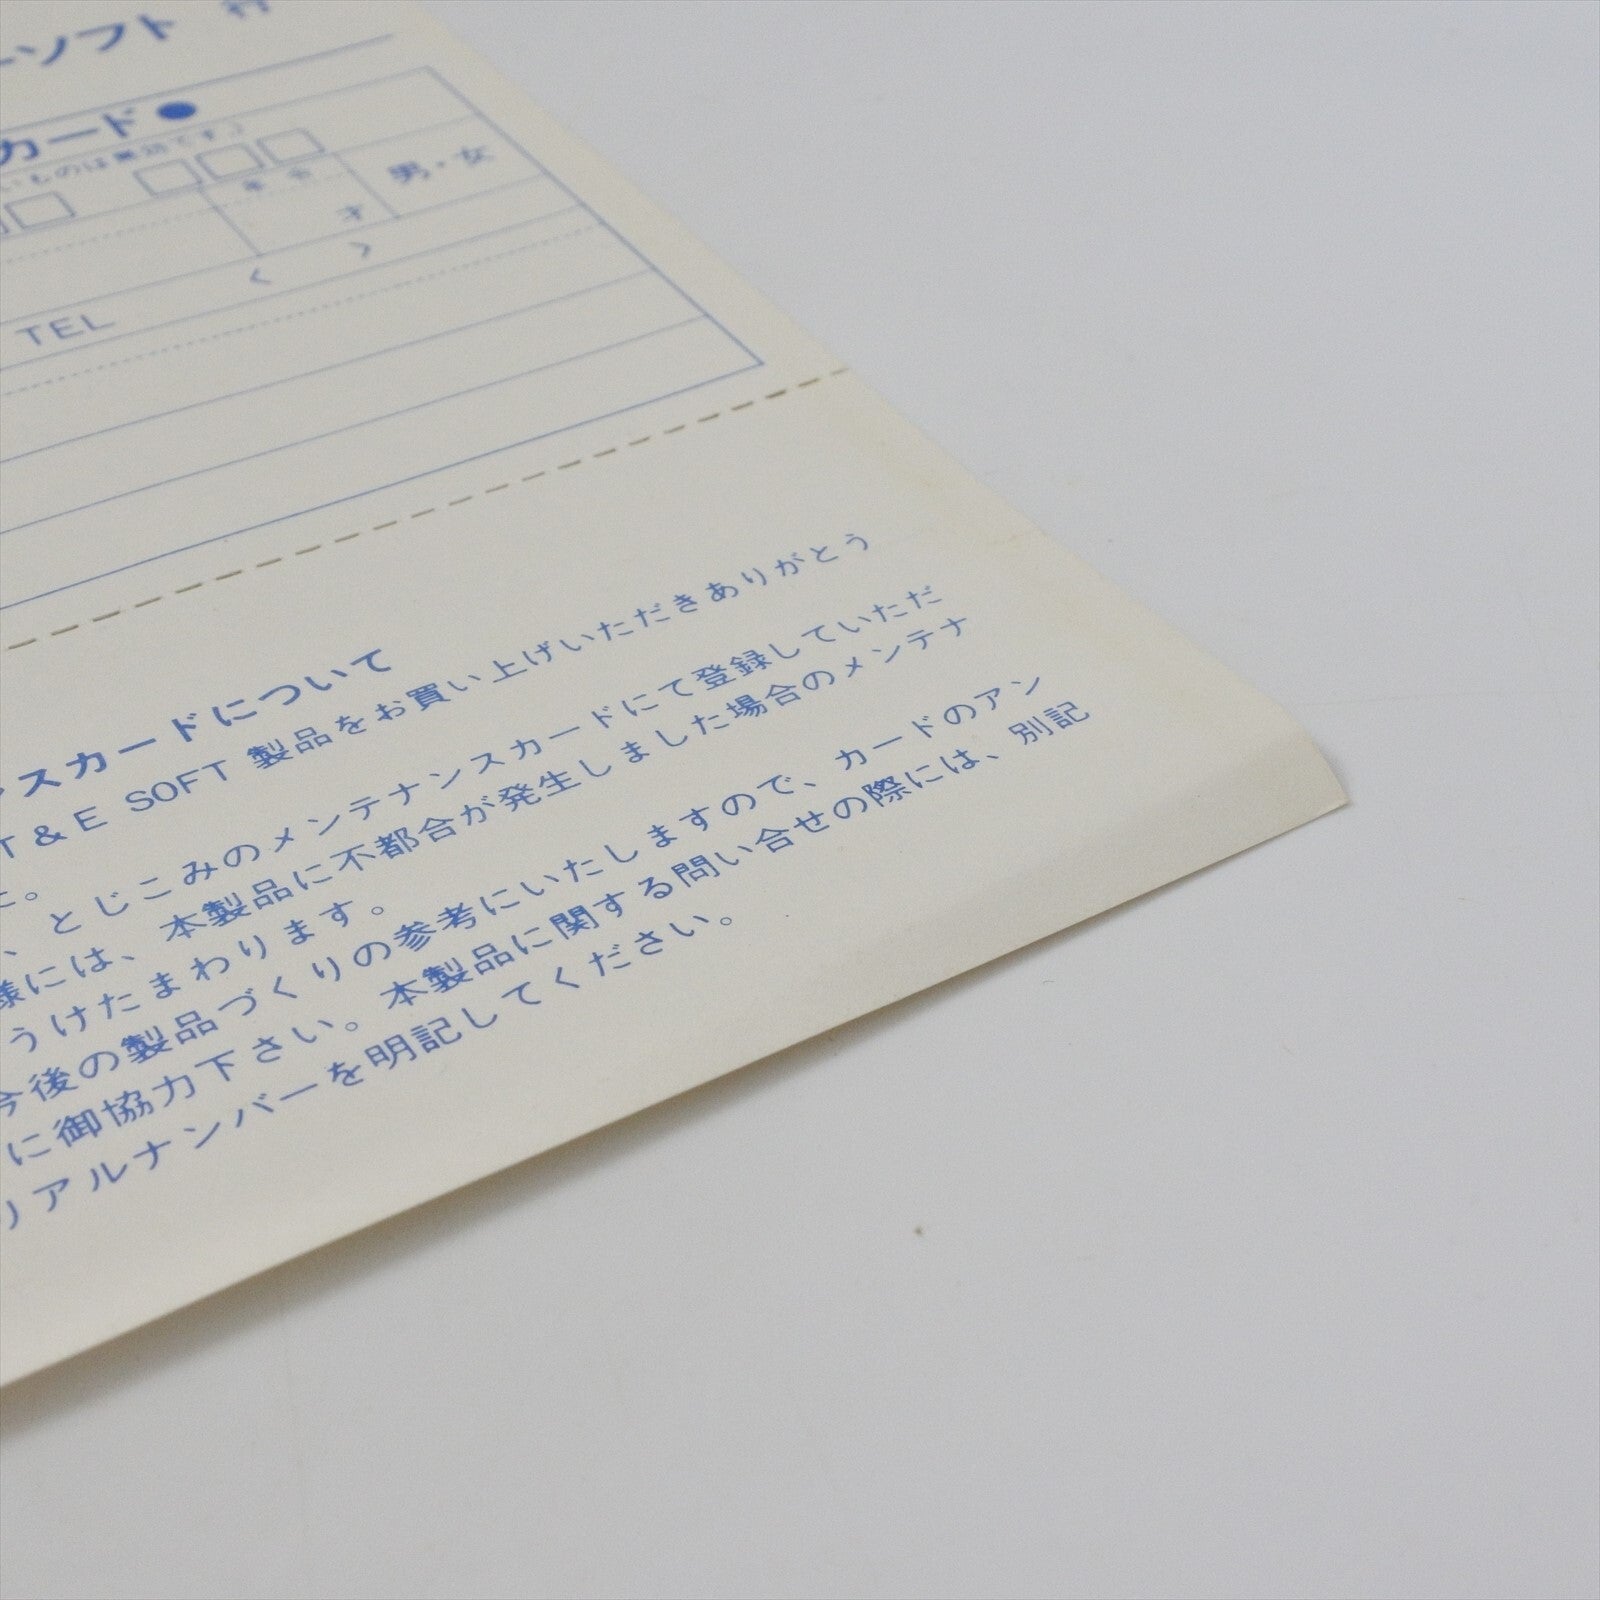 ーソフト 行
カード●
いものは無効です。)
年令
男・女
才
< >
TEL
スカードについて
T&E SOFT 製品をお買い上げいただきありがとう
た。
、とじこみのメンテナンスカードにて登録していただ
様には、本製品に不都合が発生しました場合のメンテナ
うけたまわります。
今後の製品づくりの参考にいたしますので、カードのアン
に御協力下さい。本製品に関する問い合せの際には、別記
リアルナンバーを明記してください。